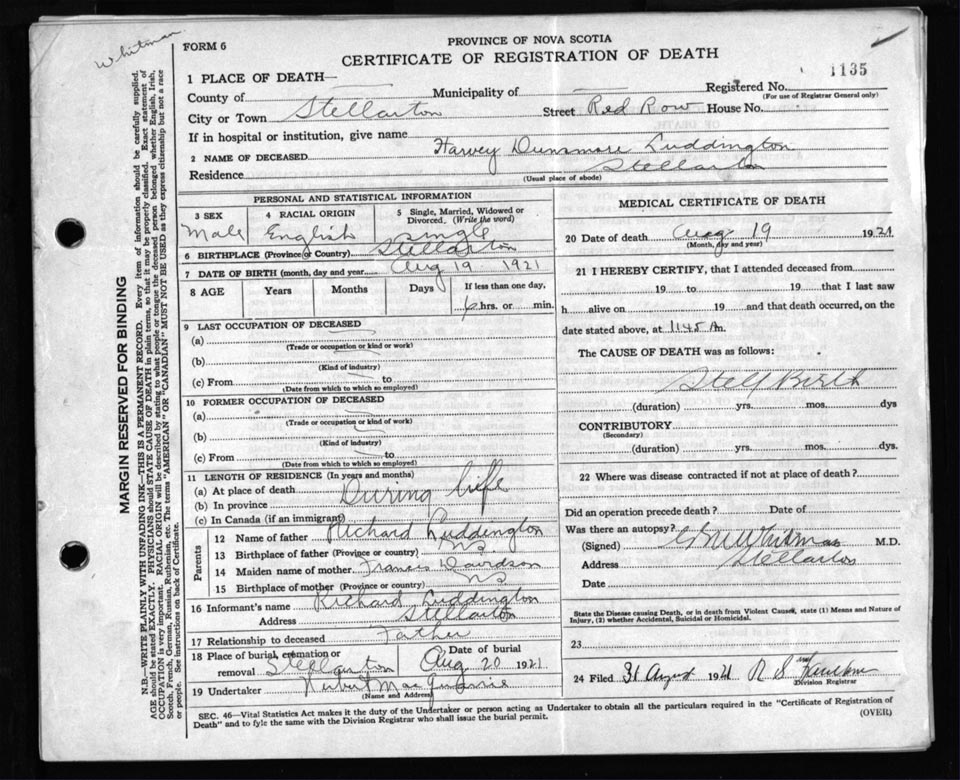 Whitman
FORM 6
PROVINCE OF NOVA SCOTIA
CERTIFICATE OF REGISTRATION OF DEATH
1135
1 PLACE OF DEATH—
County of Municipality of Registered No.
(For use of Registrar General only)
City or Town Stellarton Street Red Row House No.
If in hospital or institution, give name
2 NAME OF DECEASED Harvey Dunsmore Luddington
Residence Stellarton
(Usual place of abode)
PERSONAL AND STATISTICAL INFORMATION
3 SEX
Male
4 RACIAL ORIGIN
English
5 Single, Married, Widowed or Divorced. (Write the word)
single
6 BIRTHPLACE (Province or Country) Stellarton
7 DATE OF BIRTH (month, day and year) Aug 19 1921
8 AGE Years Months Days If less than one day,
6 hrs. or min.
9 LAST OCCUPATION OF DECEASED
(a)
(Trade or occupation or kind or work)
(b)
(Kind of industry)
(c) From to
(Date from which to which so employed)
10 FORMER OCCUPATION OF DECEASED
(a)
(Trade or occupation or kind of work)
(b)
(Kind of industry)
(c) From to
(Date from which to which so employed)
11 LENGTH OF RESIDENCE (In years and months)
(a) At place of death During life
(b) In province
(c) In Canada (if an immigrant)
Parents
12 Name of father Richard Luddington
13 Birthplace of father (Province or country) N.S.
14 Maiden name of mother Francis Davidson
15 Birthplace of mother (Province or country) N.S.
16 Informant's name Richard Luddington
Address Stellarton
17 Relationship to deceased Father
18 Place of burial, cremation or removal Stellarton
Date of burial Aug 20 1921
19 Undertaker
(Name and Address)
MEDICAL CERTIFICATE OF DEATH
20 Date of death Aug 19 1921
(Month, day and year)
21 I HEREBY CERTIFY, that I attended deceased from
19 to 19 that I last saw
h alive on 19 and that death occurred, on the
date stated above, at 11.45 Am.
The CAUSE OF DEATH was as follows:
Still Birth
(duration) yrs. mos. dys
CONTRIBUTORY
(Secondary)
(duration) yrs. mos. dys.
22 Where was disease contracted if not at place of death?
Did an operation precede death? Date of
Was there an autopsy?
(Signed) Whitman M.D.
Address Stellarton
Date
State the Disease causing Death, or in death from Violent Causes, state (1) Means and Nature of
Injury, (2) whether Accidental, Suicidal or Homicidal.
23
24 Filed 31 August 1921 R S
Division Registrar
SEC. 46—Vital Statistics Act makes it the duty of the Undertaker or person acting as Undertaker to obtain all the particulars required in the "Certificate of Registration of
Death" and to fyle the same with the Division Registrar who shall issue the burial permit.
(OVER)
MARGIN RESERVED FOR BINDING
N.B.—WRITE PLAINLY WITH UNFADING INK—THIS IS A PERMANENT RECORD. Every item of information should be carefully supplied.
AGE should be stated EXACTLY. PHYSICIANS should STATE CAUSE OF DEATH in plain terms, so that it may be properly classified. Exact statement of
OCCUPATION is very important. RACIAL ORIGIN will be described by stating to what people or tongue the deceased person belonged whether English, Irish,
Scotch, French, German, Russian, Ruthenian, etc. The terms "AMERICAN" OR "CANADIAN" MUST NOT BE USED as they express citizenship but not a race
or people. See instructions on back of Certificate.